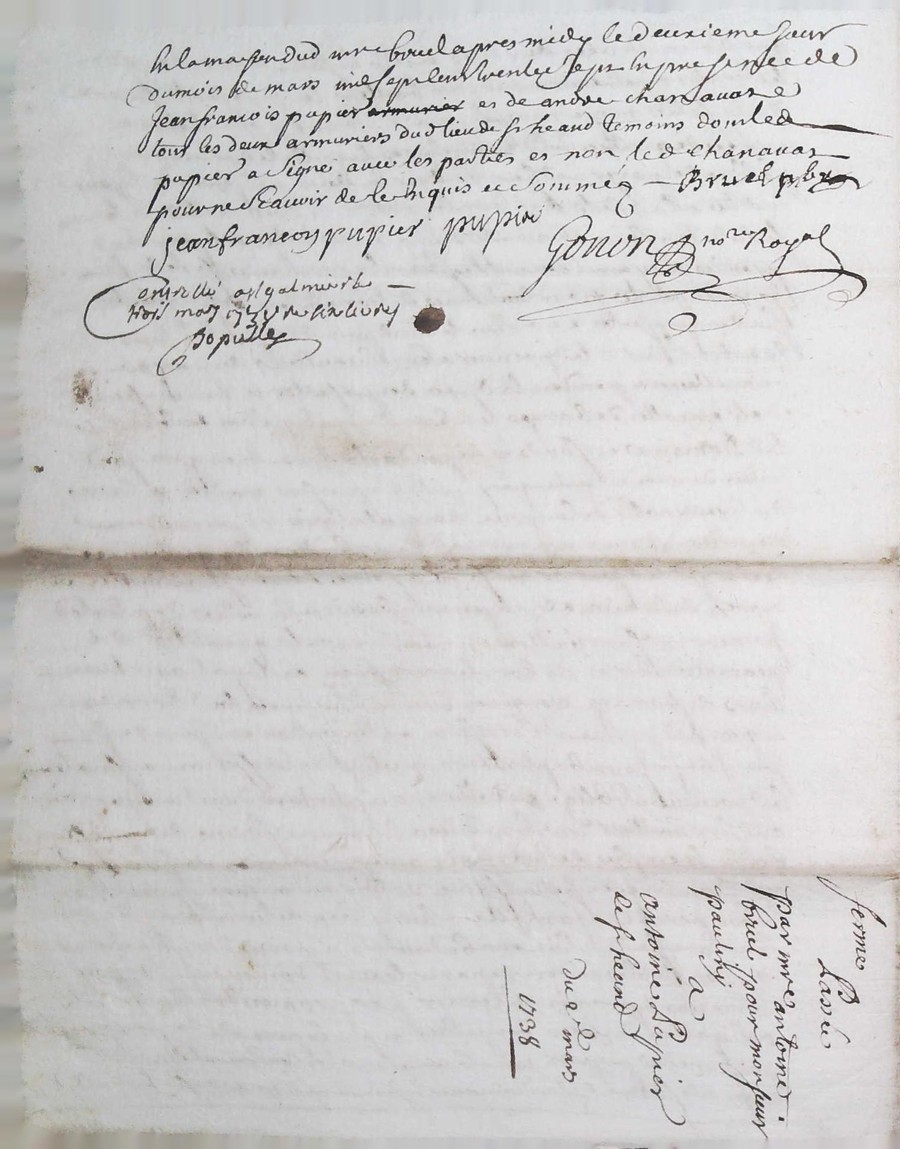 en la maison dud mre bruel apres midy le deuxieme jour
du mois de mars mil sept cent trente sept en presence de
Jean francois pupier armurier et de andre chanavat
tous les deux armuriers dud lieu de st heand temoins dont led
pupier a signé avec les parties et non led chanavat
pour ne scavoir de ce enquis et sommé Bruel pbre
jeanfrancois pupier pupier
Gonon nore Royal
controllé a st galmier le
trois mars 1737 re six livres
ferme
Passée
par mre antoine
bruel pour monsieur
a
antoine Pupier
de st heand
du 2e mars
1738